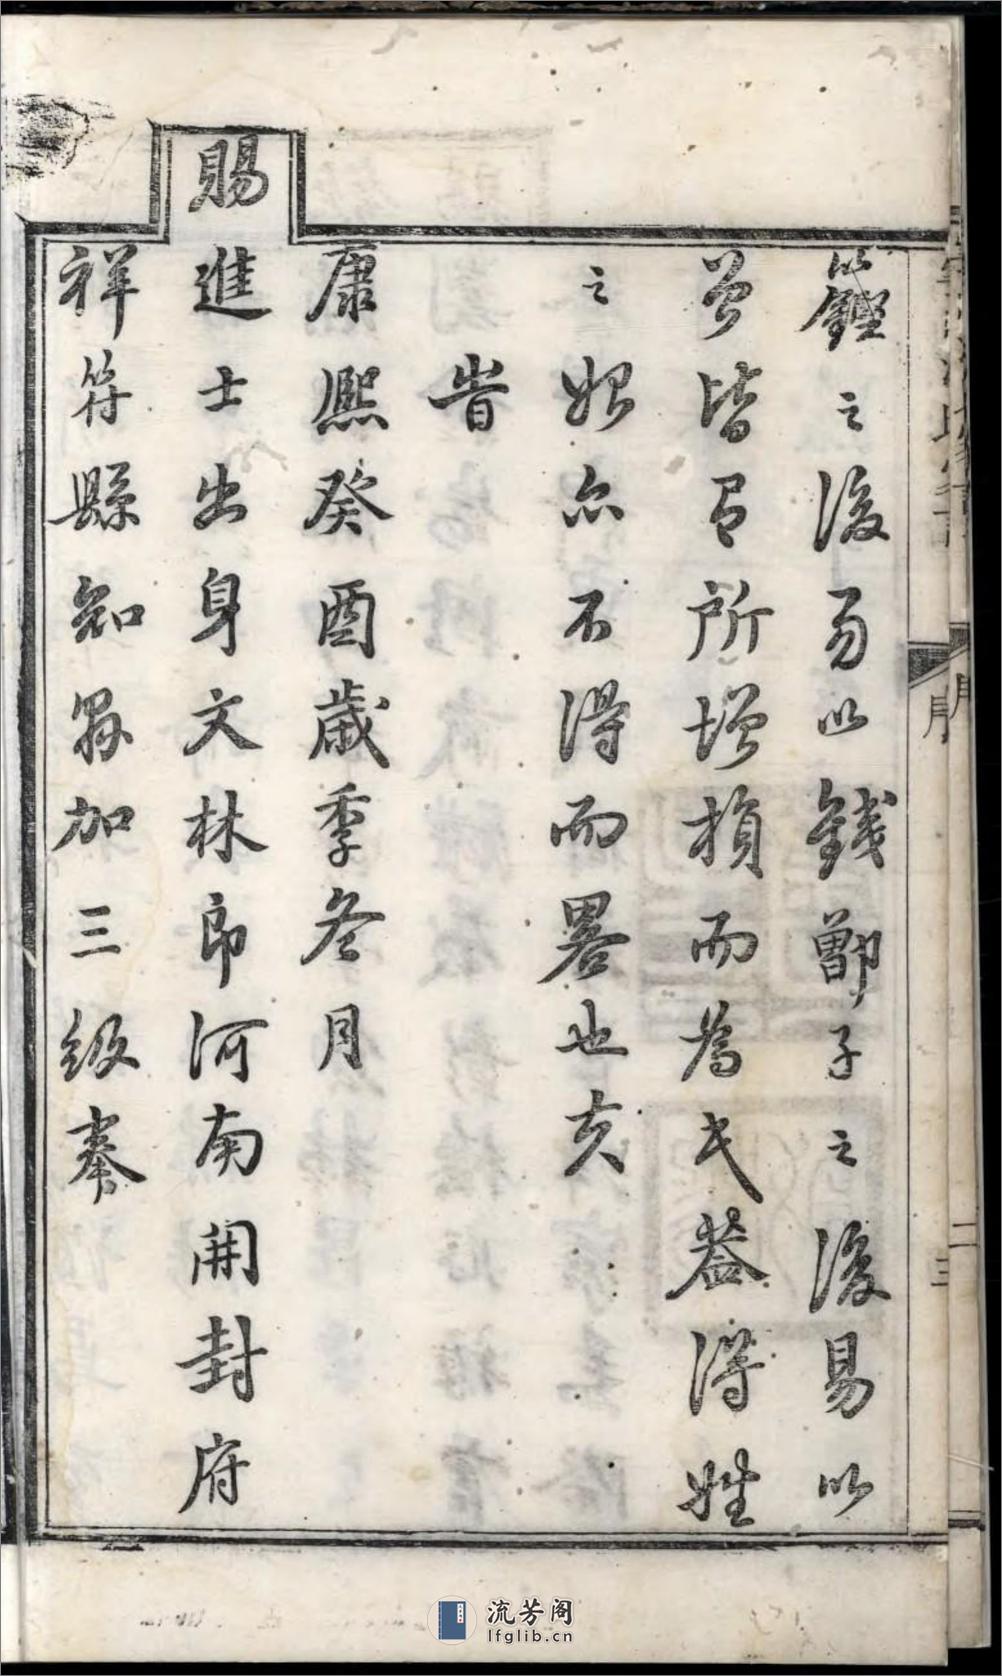 籛鏗之後易以錢鄫子之後易以
曾皆有所增損而為氏蓋得姓
之始亦不得而畧也夫
旹
康熙癸酉歲季冬月
賜進士出身文林郎河南開封府
祥符縣知縣加三級奉
序
二
三
流芳阁
lfglib.cn